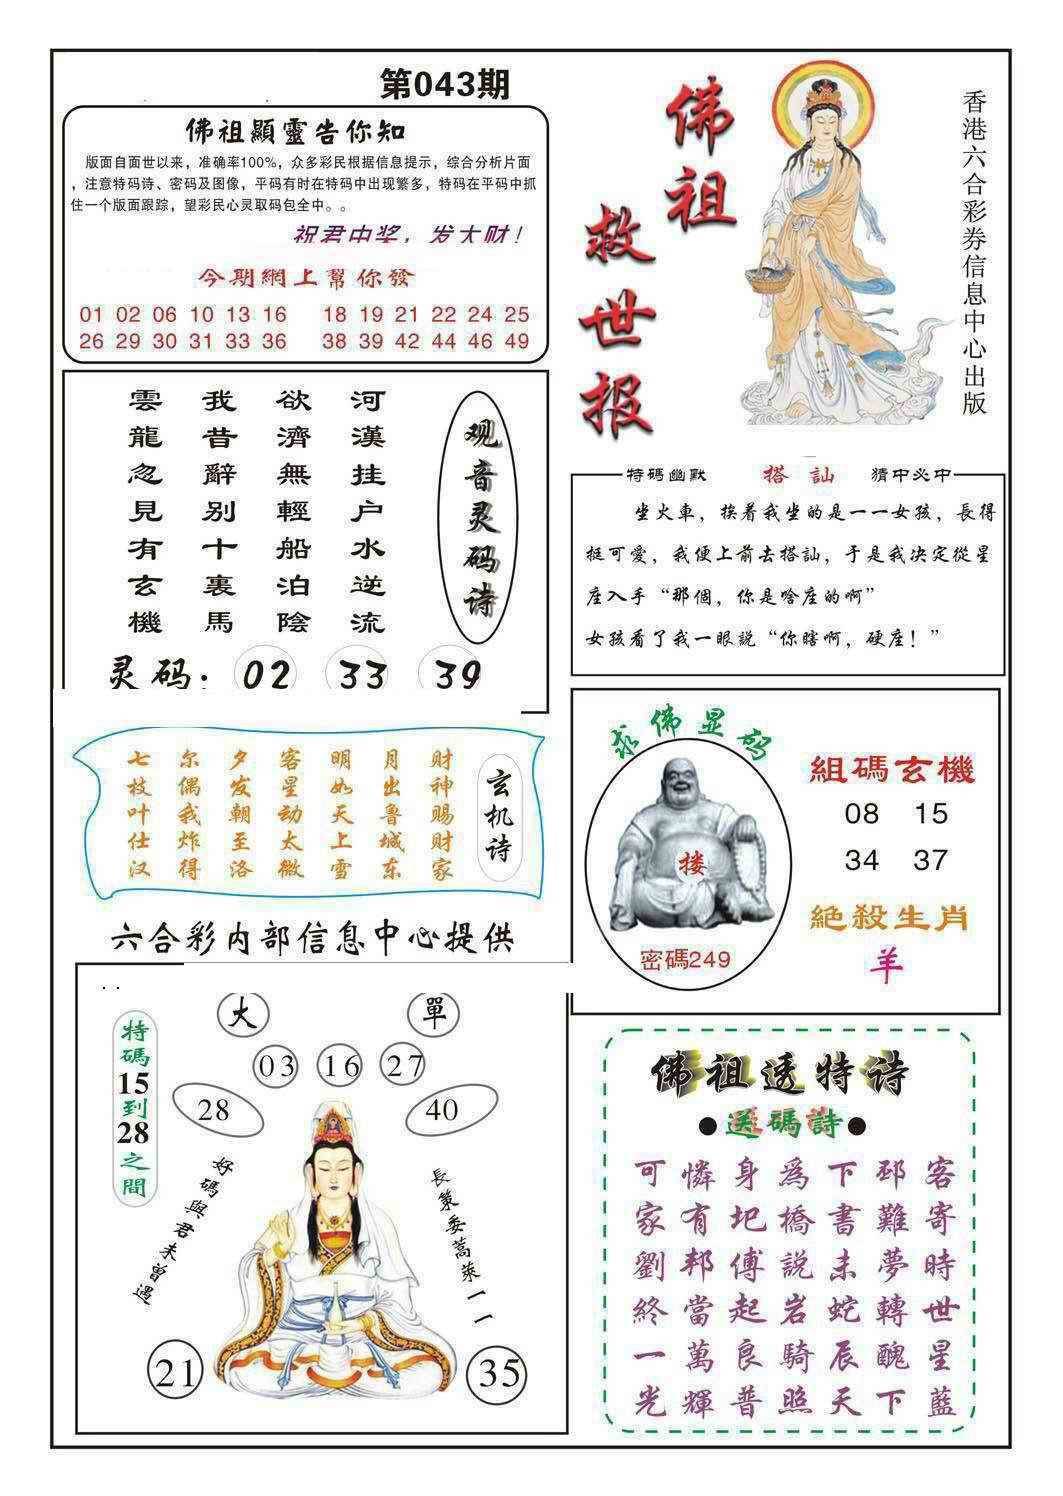 第043期
佛祖顯靈告你知
版面自面世以来，准确率100%，众多彩民根据信息提示，综合分析片面
，注意特码诗、密码及图像，平码有时在特码中出现繁多，特码在平码中抓
住一个版面跟踪，望彩民心灵取码包全中。。
祝君中奖，发大财！
今期網上幫你發
01 02 06 10 13 16 18 19 21 22 24 25
26 29 30 31 33 36 38 39 42 44 46 49
佛祖
救世报
香港六合彩券信息中心出版
雲我欲河
龍昔濟漢
忽辭無挂
見别輕户
有十船水
玄裏泊逆
機馬陰流
观音灵码诗
灵码：02 33 39
特碼幽默 搭訕 猜中必中
坐火車，挨着我坐的是一一女孩，長得
挺可愛，我便上前去搭訕，于是我决定從星
座入手“那個，你是啥座的啊”
女孩看了我一眼説“你瞎啊，硬座！”
七尔夕客明月财
枝偶发星如出神
叶我朝动天鲁赐
仕炸至太上城财
汉得洛微雪东家
玄机诗
求佛显码
搂
密碼249
組碼玄機
08 15
34 37
絶殺生肖
羊
六合彩内部信息中心提供
大 單
03 16 27
28 40
特碼15到28之間
好碼與君未曾遇
長策委蒿萊一一
21 35
佛祖透特诗
●送碼詩●
可憐身爲下邳客
家有圯橋書難寄
劉邦傅説未夢時
終當起岩蛇轉世
一萬良騎辰醜星
光輝普照天下藍